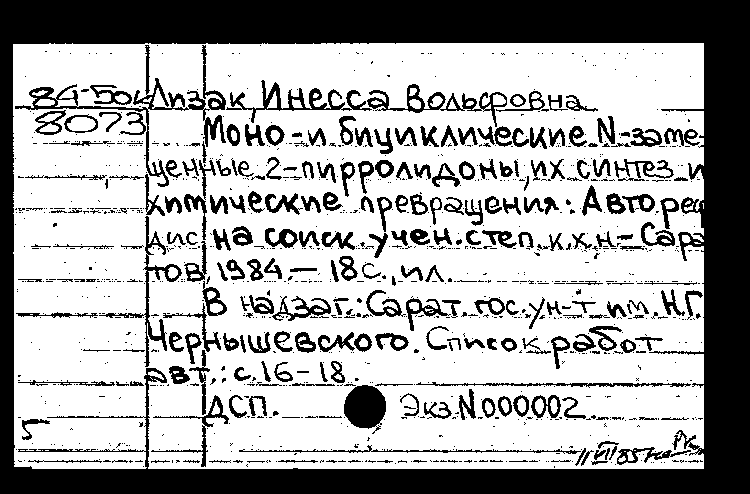 84-50к Лизак, Инесса Вольфовна
8073 Моно- и бициклические N-заме-
щенные 2-пирролидоны, их синтез и
химические превращения: Автореф.
дис. на соиск. учен. степ. к.х.н. - Сара
тов, 1984. — 18с., ил.
В надзаг.: Сарат. гос. ун-т им. Н.Г.
Чернышевского. Список работ
авт.: с. 16-18.
ДСП. Экз N000002
5
11 VII 85